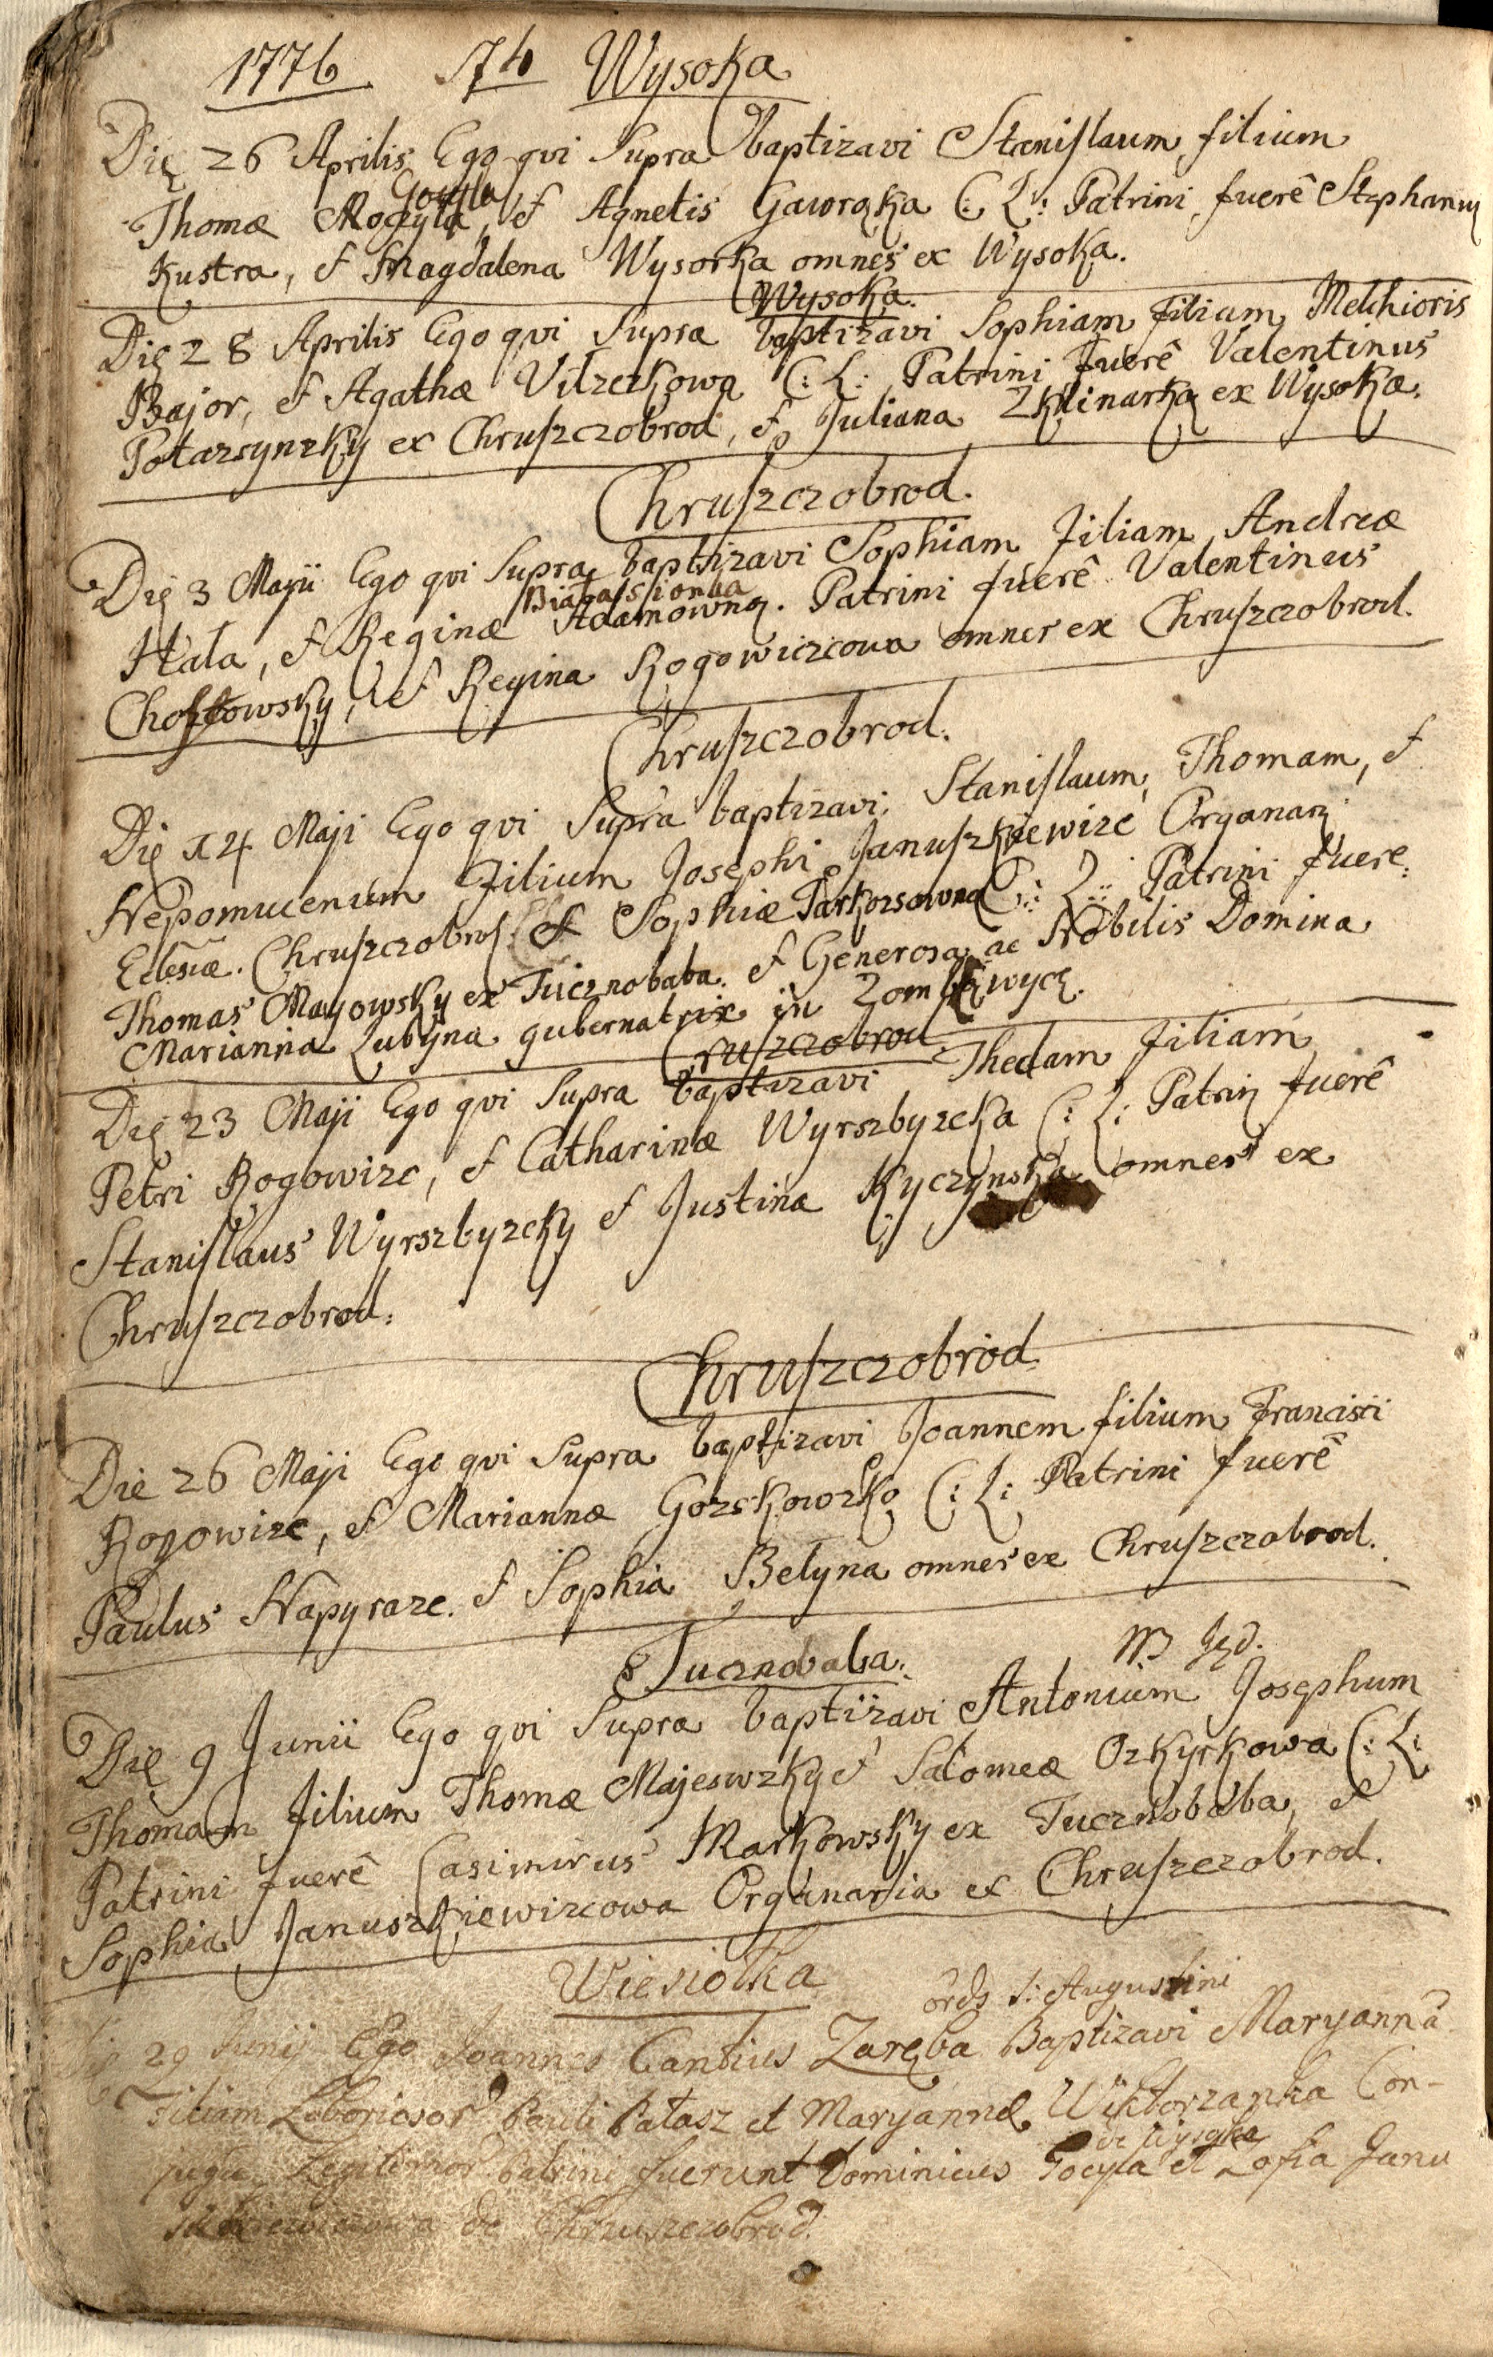 1776 74 Wysoka
Die 26 Aprilis Ego qvi Supra baptizavi Stanislaum filium
Gocyla
Thomæ Mogzyla, et Agnetis Gawrąka C: L: Patrini fuerê Stephanus
Kustra, et Magdalena Wysorka omnes ex Wysoka.
Wysoka.
Die 28 Aprilis Ego qvi Supra baptizavi Sophiam filiam Melchioris
Bajor, et Agathæ Vilzezkowa C: L: Patrini fuerê Valentinus
Potarsynsky ex Chruszczobrod, et Juliana Zklinarka ex Wysoka.
Chruszczobrod.
Die 3 Majii Ego qvi Supra baptizavi Sophiam filiam Andreæ
Hala, et Reginæ Adamowna. Patrini fuerê Valentinus
Chostowsky, et Regina Rogowiczcowa omnes ex Chruszczobrod.
Chruszczobrod.
Die 14 Maji Ego qvi Supra baptizavi Stanislaum, Thomam, et
Nepomucenum filium Josephi Januszkiewizc Organarii
Eclesiæ. Chruszczobrod et Sophiæ C: L: Patrini fuere
Thomas Mayowsky ex Tucznobaba. et Generosa ac Nobilis Domina
Marianna Lubyna gubernatrix in Zombkwyce.
Cruszczobrod
Die 23 Maji Ego qvi Supra baptizavi Theclam filiam
Petri Rogowizc, et Catharinæ Wyrszbyzcka C: L: Patrini fuerê
Stanislaus Wyrszbyzcky et Justina Kyczynska omnes ex
Chruszczobrod.
Chruszczobrod.
Die 26 Maji Ego qvi Supra baptizavi Joannem filium Francisci
Rogowizc, et Mariannæ Gorskowzko C: L: Patrini fuerê
Paulus Napyrazc. et Sophia Belyna omnes ex Chruszczobrod.
Tucznobaba.
Die 9 Junii Ego qvi Supra baptizavi Antonium Josephum
Thomam filium Thomæ Majeswzky et Salomeæ Ozkyrkowa C: L:
Patrini fuerê Casimirus Markowsky ex Tucznobaba, et
Sophia Januszkiewizcowa Organaria ex Chruszczobrod.
Wiesiołka
ords S: Augustini
Die 29 Junij Ego Joannes Cantius Zaręba Baptizavi Maryannã
Filiam Laboriosor Pauli Pałasz et Maryannæ Wiktorzanka Con-
de Wysoka
jugu Legitimor Patrini fuerunt Dominicus Gocyła et Zofia Janu
szkiewiczowa de Chruszczobrod.